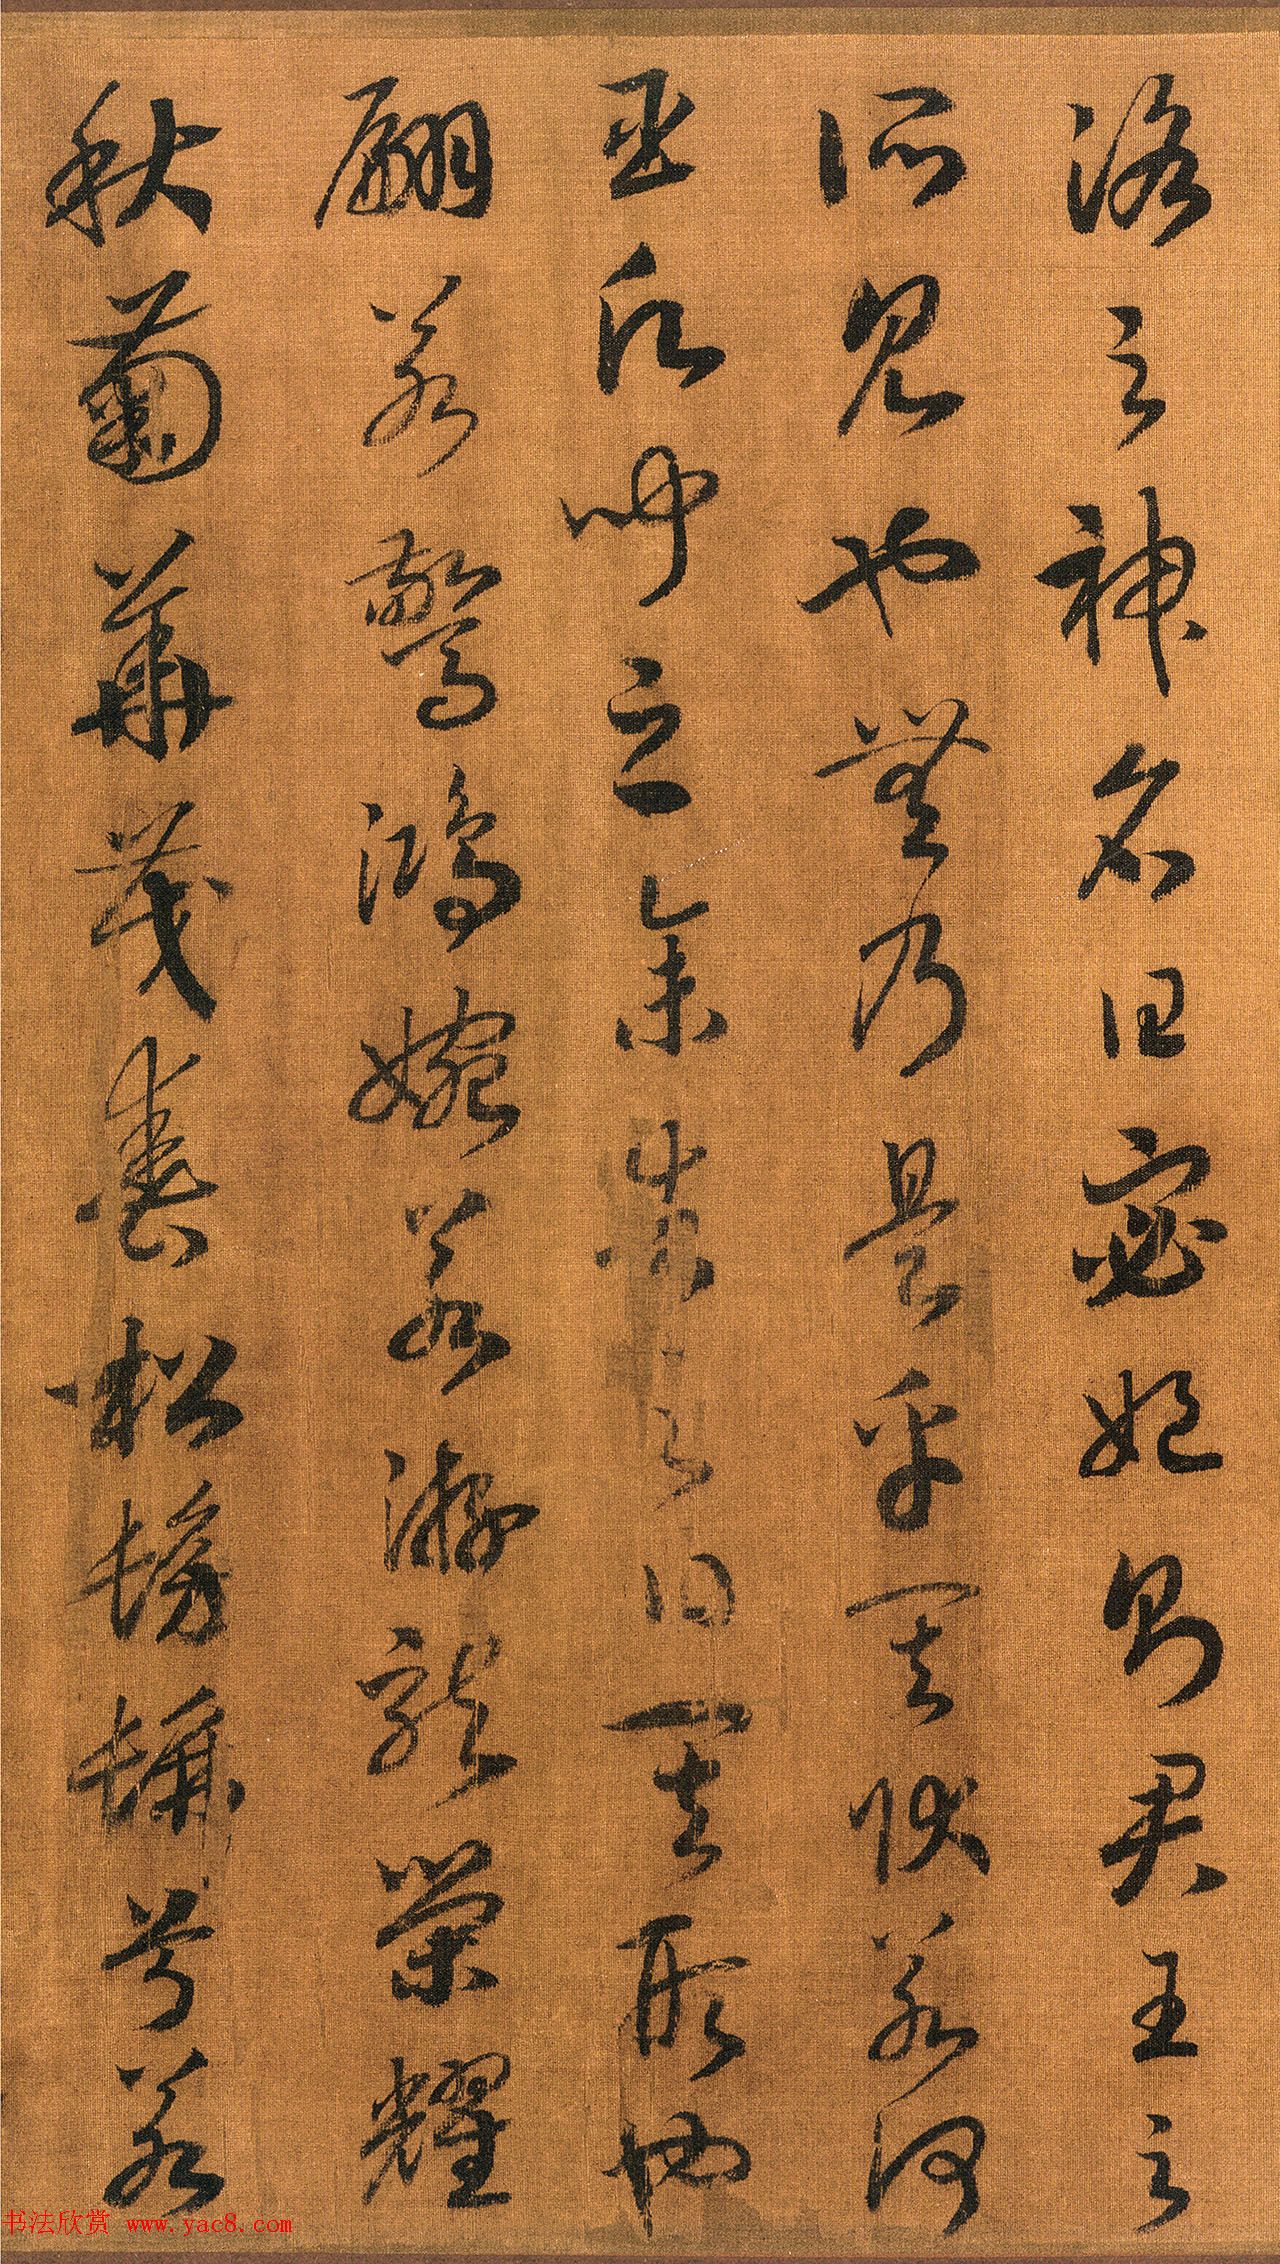 洛之神名曰宓妃則君王之
所見也無乃是乎其狀若何
臣願聞之余告之曰其形也
翩若驚鴻婉若游龍榮耀
秋菊華茂春松髣髴兮若
书法欣赏 www.yac8.com